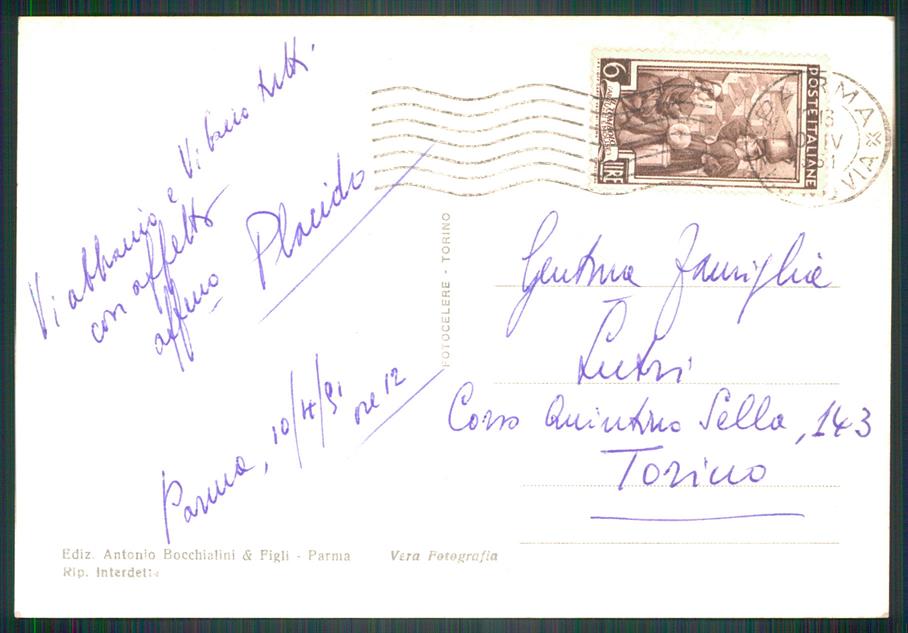 Vi abbraccio e Vi bacio tutti.
con affetto
aff.mo Placido
Parma, 10/4/51
ore 12
FOTOCELERE - TORINO
6
LIRE
POSTE ITALIANE
PARMA
IV
51
Gent.ma Famiglia
Corso Quintino Sella, 143
Torino
Ediz. Antonio Bocchialini & Figli - Parma
Vera Fotografia
Rip. Interdetta